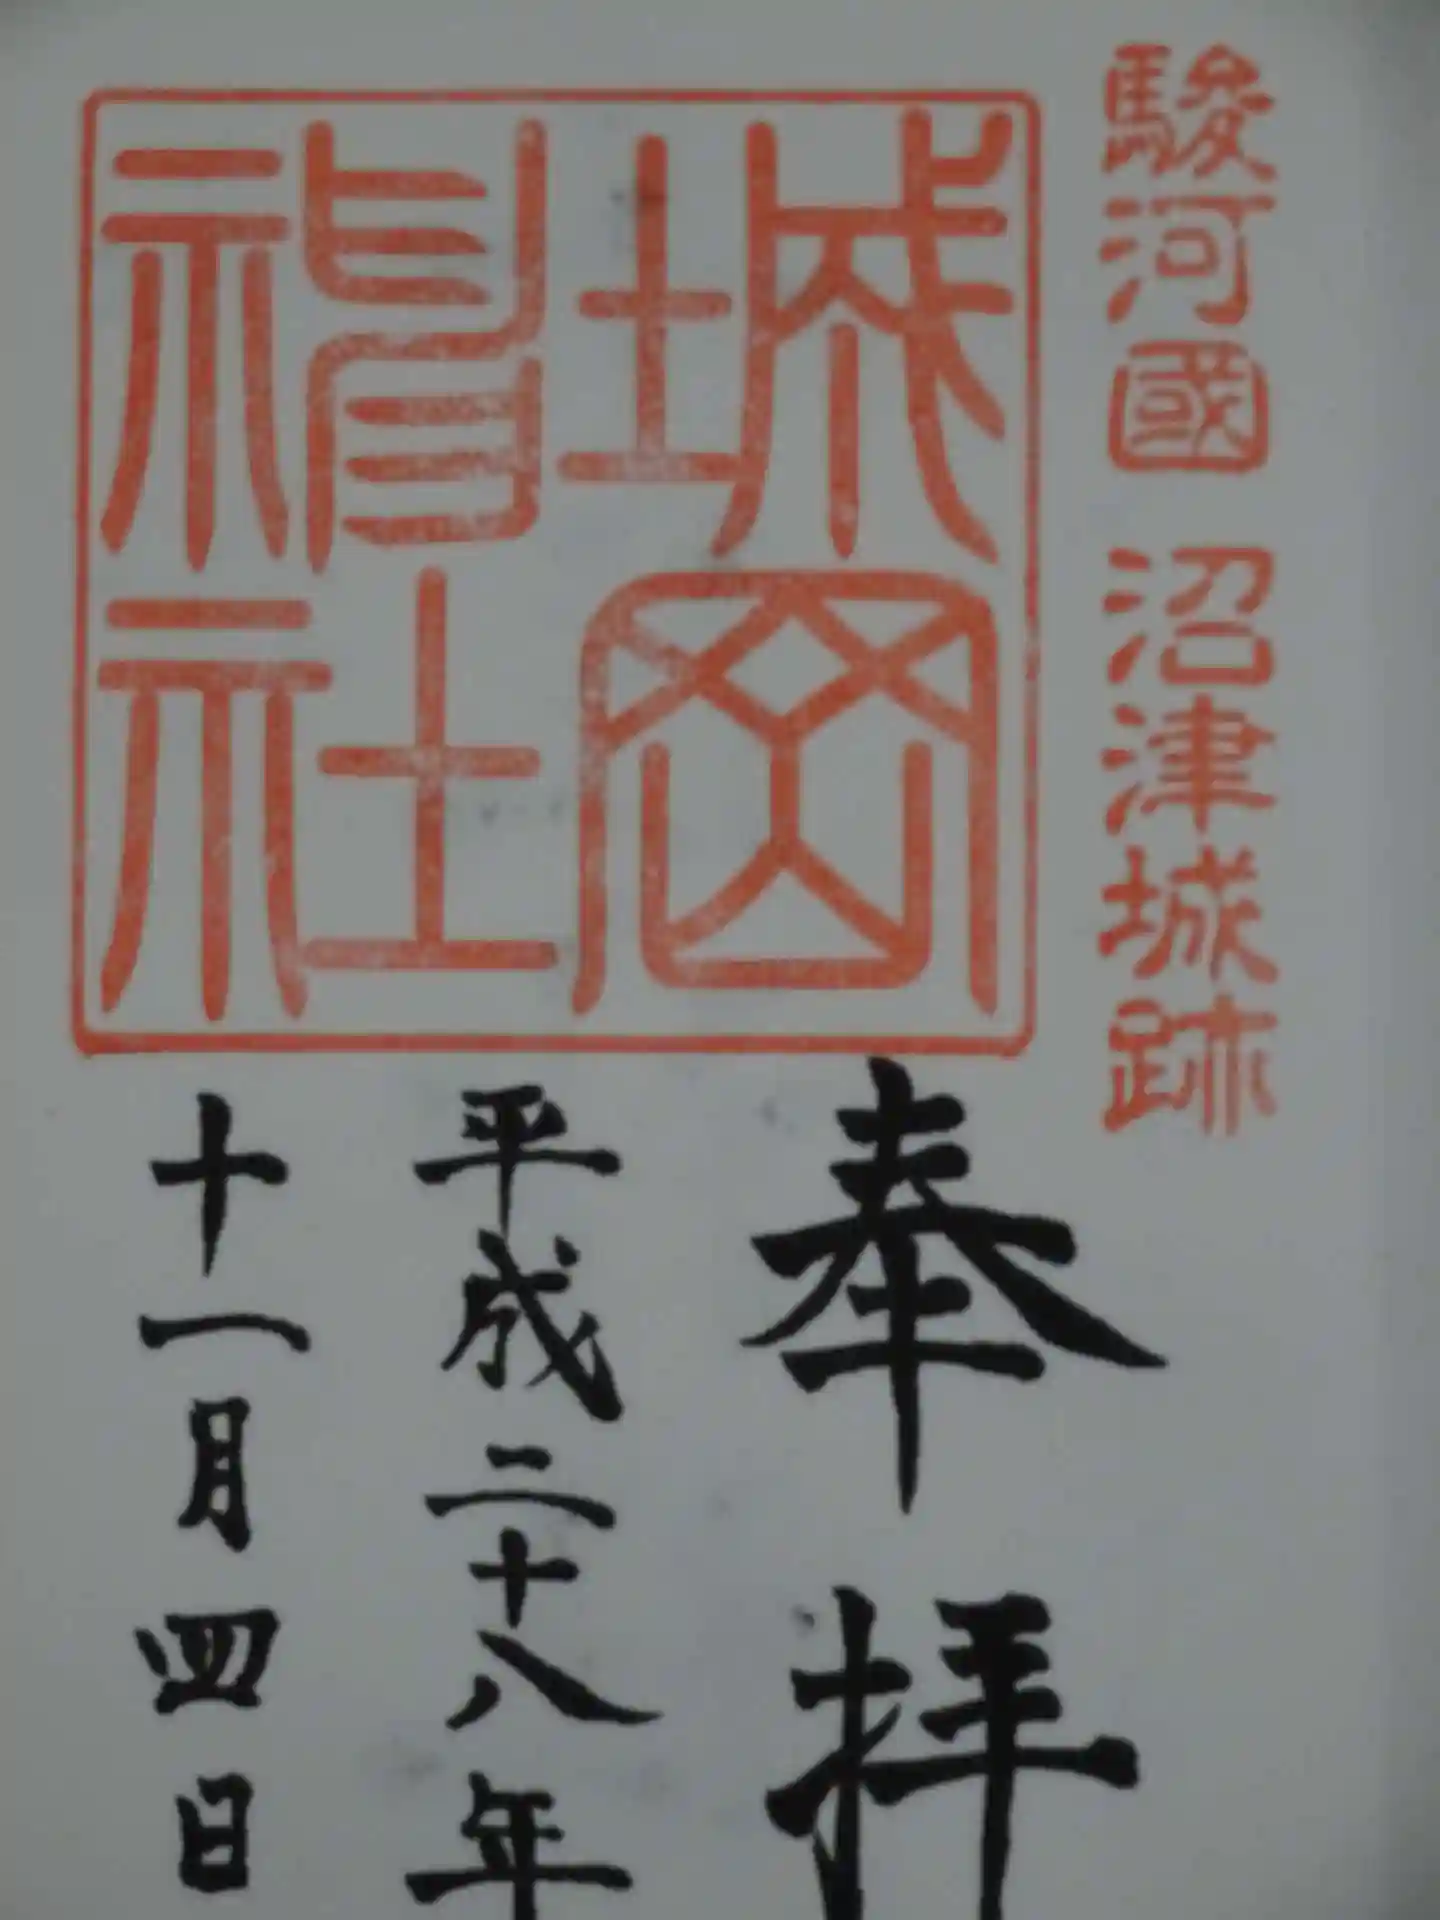 駿河國 沼津城跡
城岡
神社
奉拝
平成二十八年
十一月四日